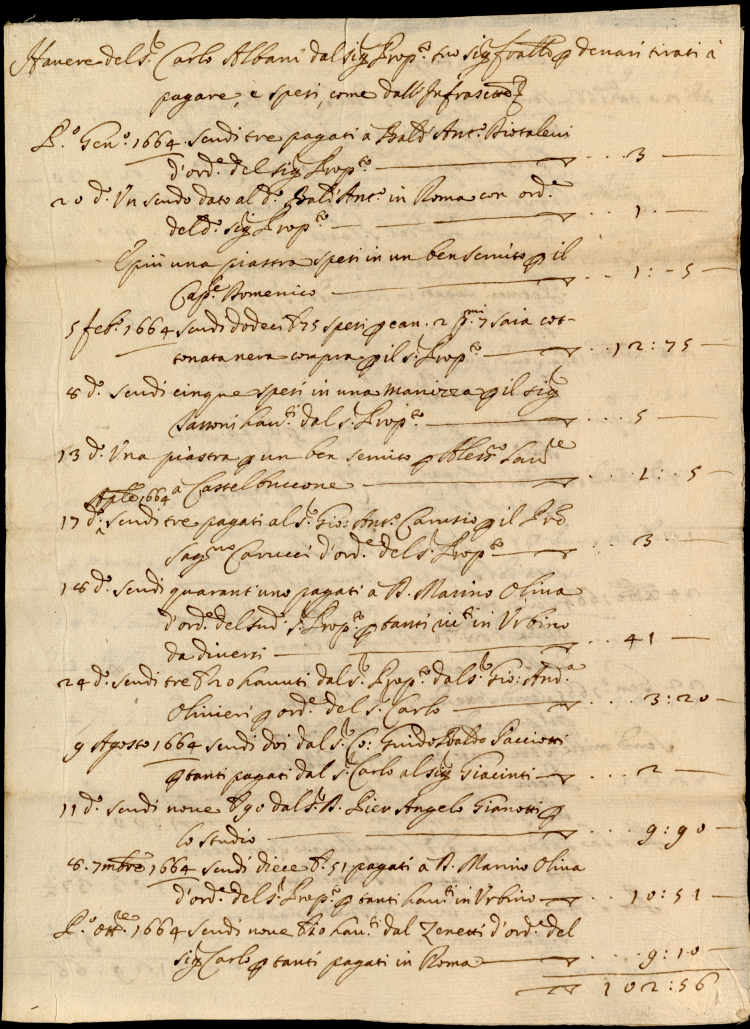 Havere del S.r Carlo Albani dal sig.r Prop.to suo sig.r fratello denari tirati à
pagare, e spesi, come dall'Infrascritto
P.o Gen.o 1664. scudi tre pagati à Bald. Ant.o Biotaleui
d'ord.e del sig.r Prop.to — 3 —
20 d.o Un scudo dato al d.o Bald. Ant.o in Roma con ord.e
del d.o sig.r Prop.to — 1 —
E più una piastra spesi in un ben servito p il
Cap.e Domenico — 1:-5 —
5 feb.o 1664 scudi dodeci b 75 spesi p can. 2 p.mi 7 saia cot-
tonata nera compra p il s.r Prop.to — 12:75 —
8 d.o scudi cinque spesi in una manizza p il sig.r
hau.ti dal s.r Prop.to — 5 —
13 d.o Una piastra p un ben servito p Aless.o
à Castelbuccone — 1:-5
Ap.le 1664
17 d.o scudi tre pagati al S.r Gio: Ant.o Carusio p il
Carucci d'ord.e del s.r Prop.to — 3 —
18 d.o scudi quarant'uno pagati à D. Marino Oliva
d'ord.e del sud.o s.r Prop.to p tanti in Urbino
da diversi — 41 —
24 d.o scudi tre b 20 hauuti dal s.r Prop.to dal s.r Gio: And.a
Olivieri p ord.e del s.r Carlo — 3:20 —
9 Agosto 1664 scudi doi dal S.r Co: Guido Baldo Pacciotti
p tanti pagati dal s.r Carlo al sig.r Giacinti — 2 —
11 d.o scudi nove b 90 dal s.r D. Pier Angelo Gianotti p
lo studio — 9:90 —
8. 7mbre 1664 scudi diece b: 51 pagati à D. Marino Oliva
d'ord.e del s.r Prop.to p tanti hau.ti in Urbino — 10:51 —
P.o ott.e 1664 scudi nove b 10 hau.ti dal Zenetti d'ord.e del
sig.r Carlo p tanti pagati in Roma — 9:10 —
102:56